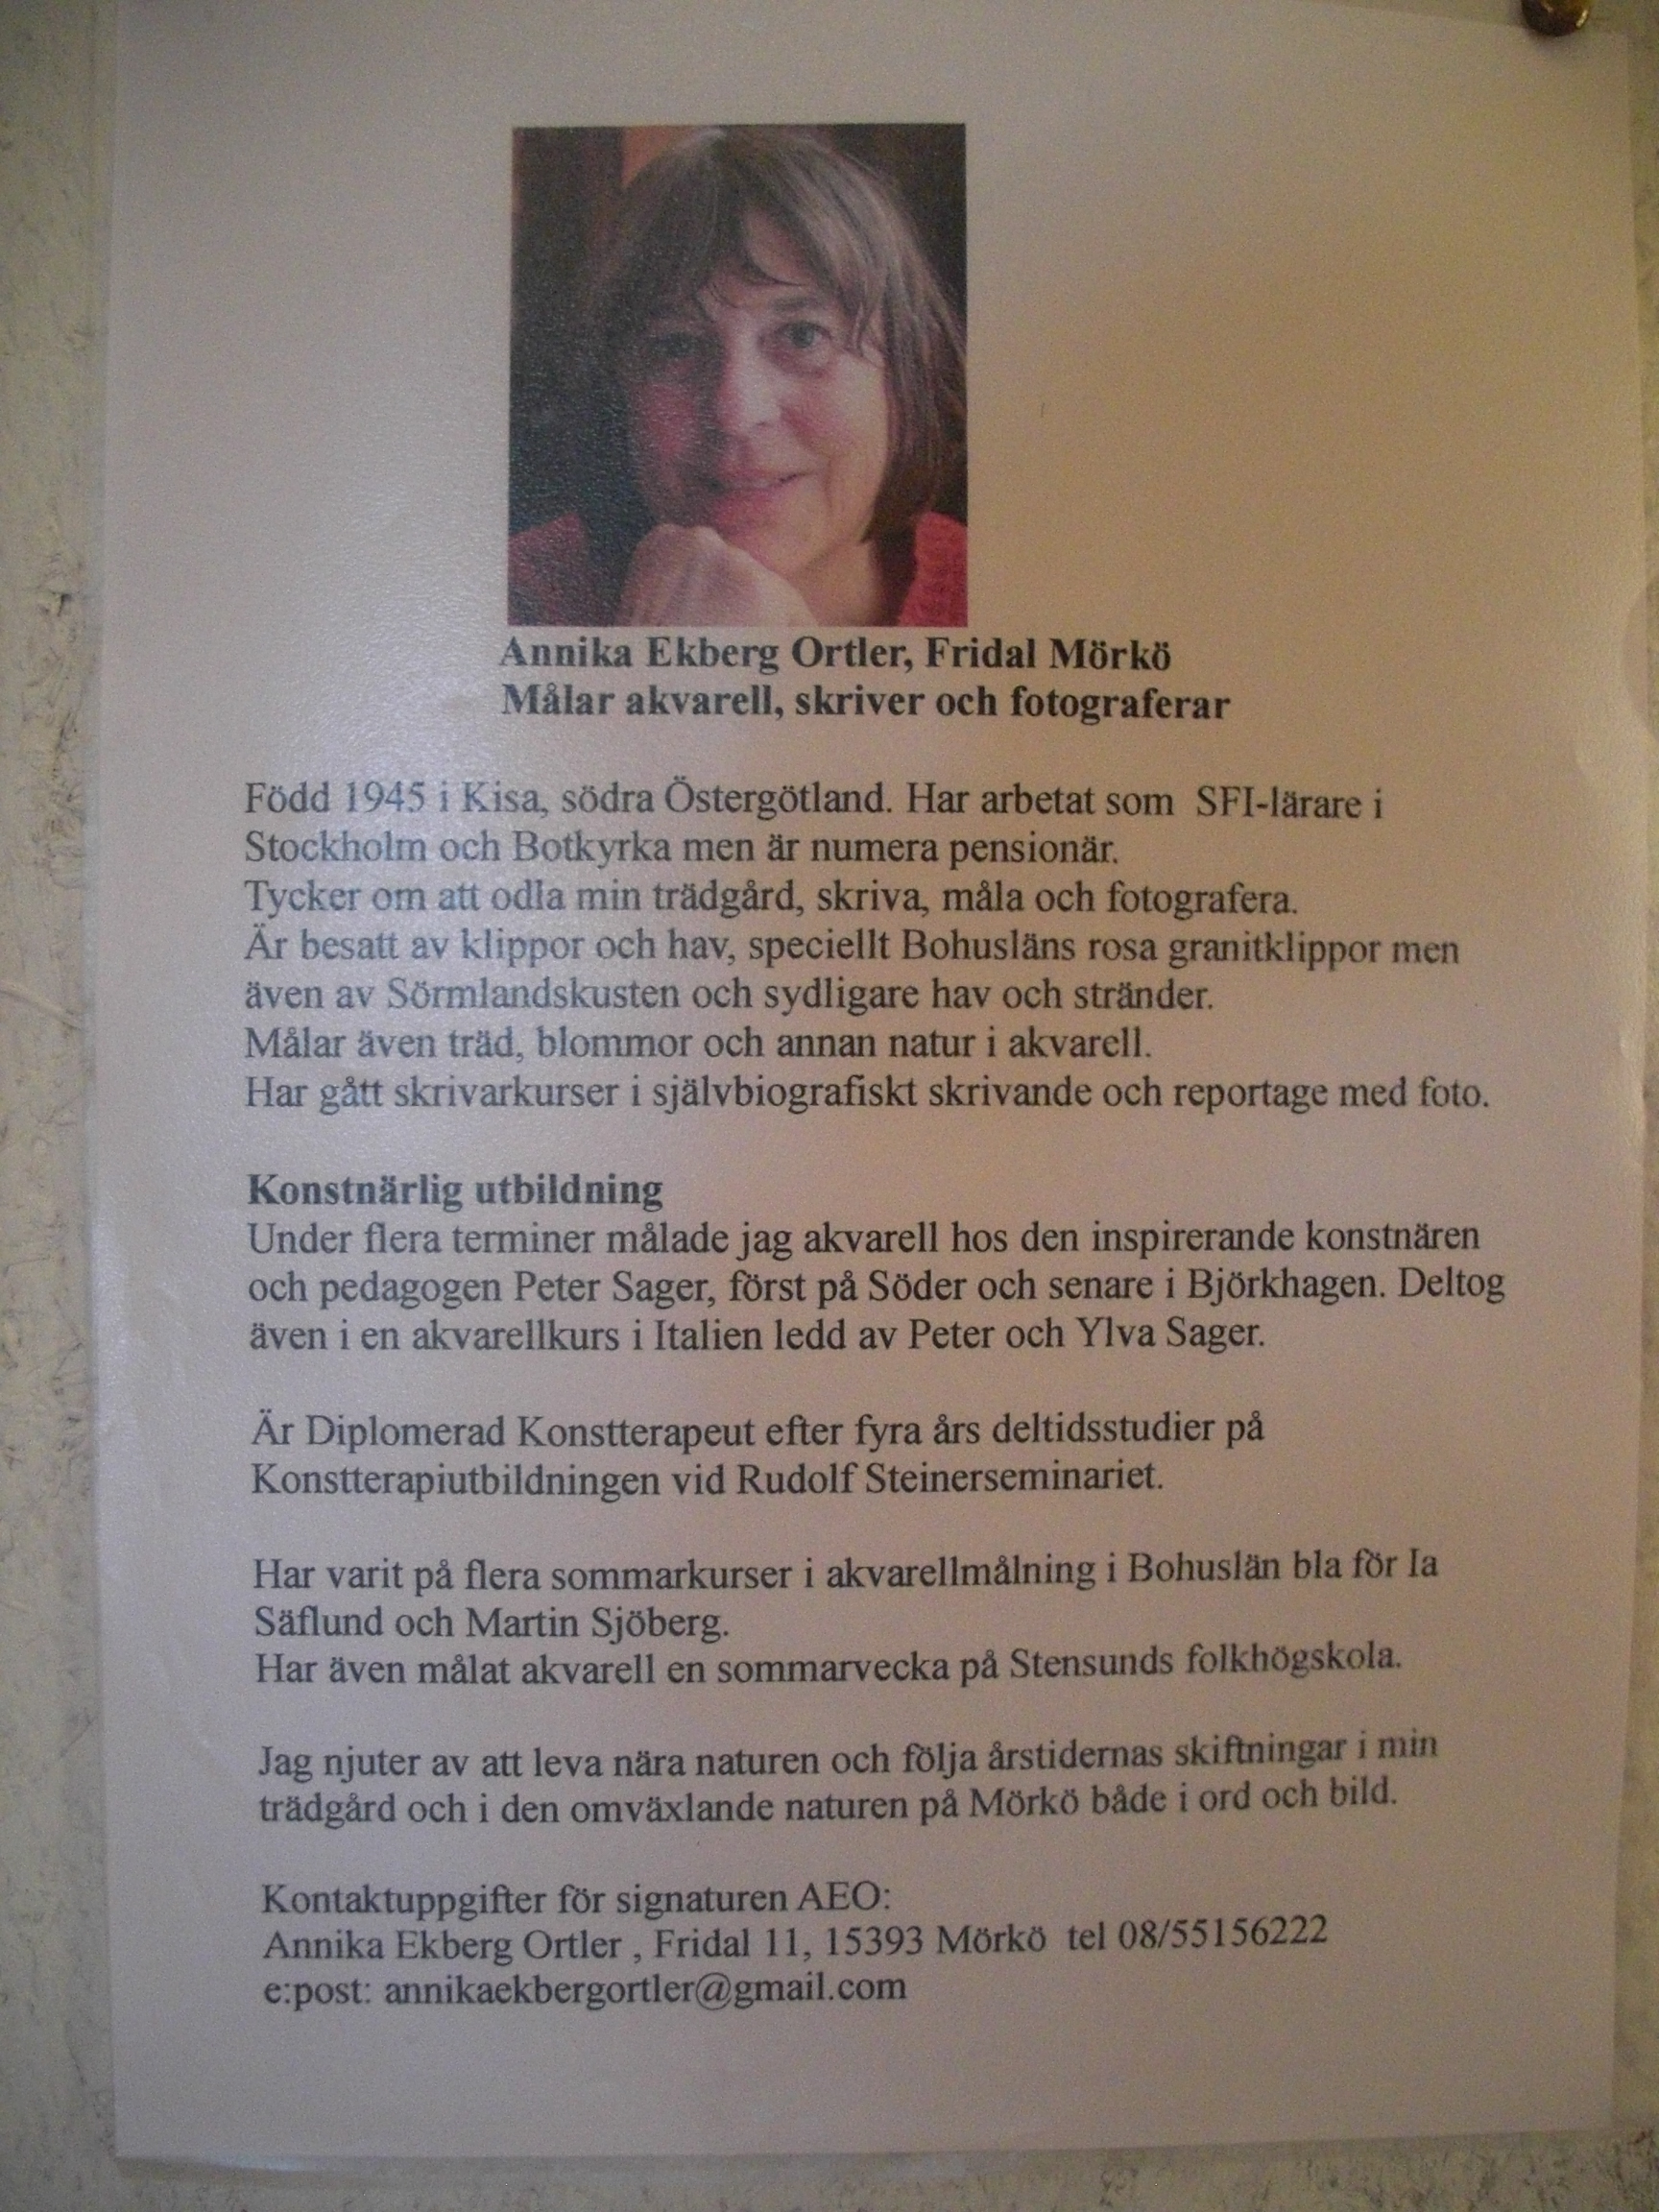 Annika Ekberg Ortler, Fridal Mörkö
Målar akvarell, skriver och fotograferar
Född 1945 i Kisa, södra Östergötland. Har arbetat som SFI-lärare i
Stockholm och Botkyrka men är numera pensionär.
Tycker om att odla min trädgård, skriva, måla och fotografera.
Är besatt av klippor och hav, speciellt Bohusläns rosa granitklippor men
även av Sörmlandskusten och sydligare hav och stränder.
Målar även träd, blommor och annan natur i akvarell.
Har gått skrivarkurser i självbiografiskt skrivande och reportage med foto.
Konstnärlig utbildning
Under flera terminer målade jag akvarell hos den inspirerande konstnären
och pedagogen Peter Sager, först på Söder och senare i Björkhagen. Deltog
även i en akvarellkurs i Italien ledd av Peter och Ylva Sager.
Är Diplomerad Konstterapeut efter fyra års deltidsstudier på
Konstterapiutbildningen vid Rudolf Steinerseminariet.
Har varit på flera sommarkurser i akvarellmålning i Bohuslän bla för Ia
Säflund och Martin Sjöberg.
Har även målat akvarell en sommarvecka på Stensunds folkhögskola.
Jag njuter av att leva nära naturen och följa årstidernas skiftningar i min
trädgård och i den omväxlande naturen på Mörkö både i ord och bild.
Kontaktuppgifter för signaturen AEO:
Annika Ekberg Ortler , Fridal 11, 15393 Mörkö tel 08/55156222
e:post: annikaekbergortler@gmail.com